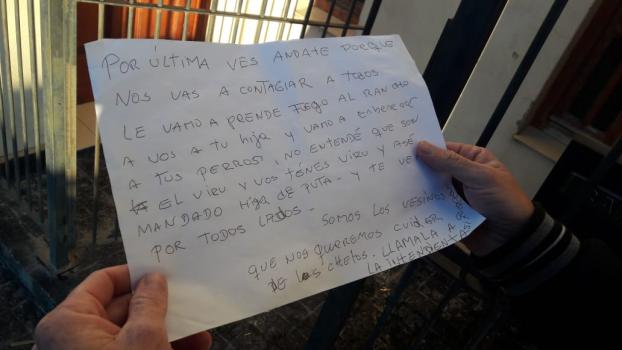 POR ÚLTIMA VES ANDATE PORQUE
NOS VAS A CONTAGIAR A TODOS
LE VAMO A PRENDE FUEGO AL RANCHO
A VOS A TU HIJA Y VAMO A ENBENENAR
A TUS PERROS, NO ENTENDÉ QUE SON
EL VIRU Y VOS TÉNES VIRU Y
MANDADO HIJA DE PUTA - Y TE VE
POR TODOS LADOS - SOMOS LOS VESINOS
QUE NOS QUEREMOS CUIDAR
DE LOS CHETOS. LLAMALA A
LA INTENDENTA